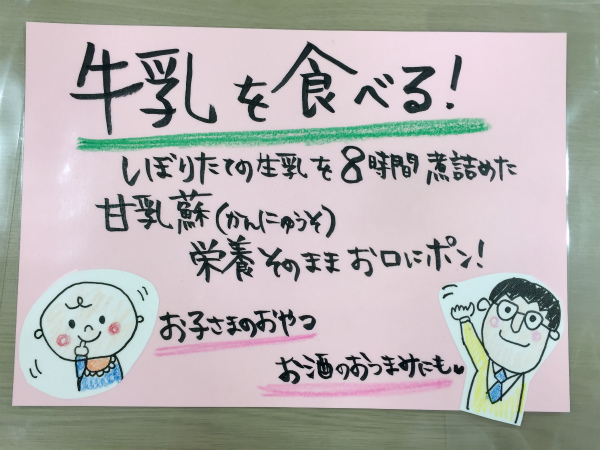 牛乳を食べる!
しぼりたての生乳を8時間煮詰めた
甘乳蘇(かんにゅうそ)
栄養そのままお口にポン!
お子さまのおやつ
お酒のおつまみにも♥